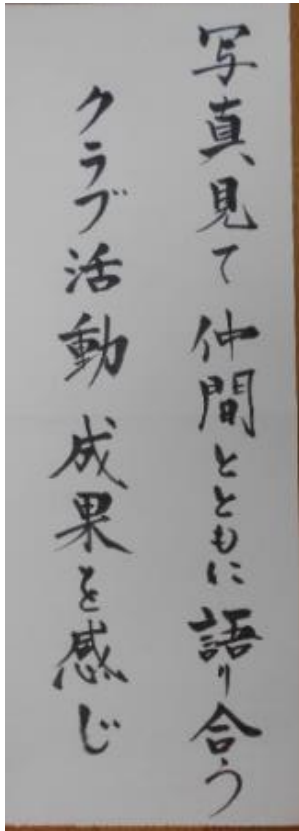 写真見て仲間とともに語り合う
クラブ活動成果を感じ